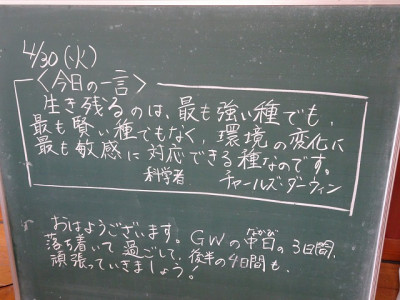 4/30(火)
<今日の一言>
生き残るのは、最も強い種でも、
最も賢い種でもなく、環境の変化に
最も敏感に対応できる種なのです。
科学者 チャールズ・ダーウィン
おはようございます。GWの中日の3日間、
なかび
落ち着いて過ごして、後半の4日間も、
頑張っていきましょう!